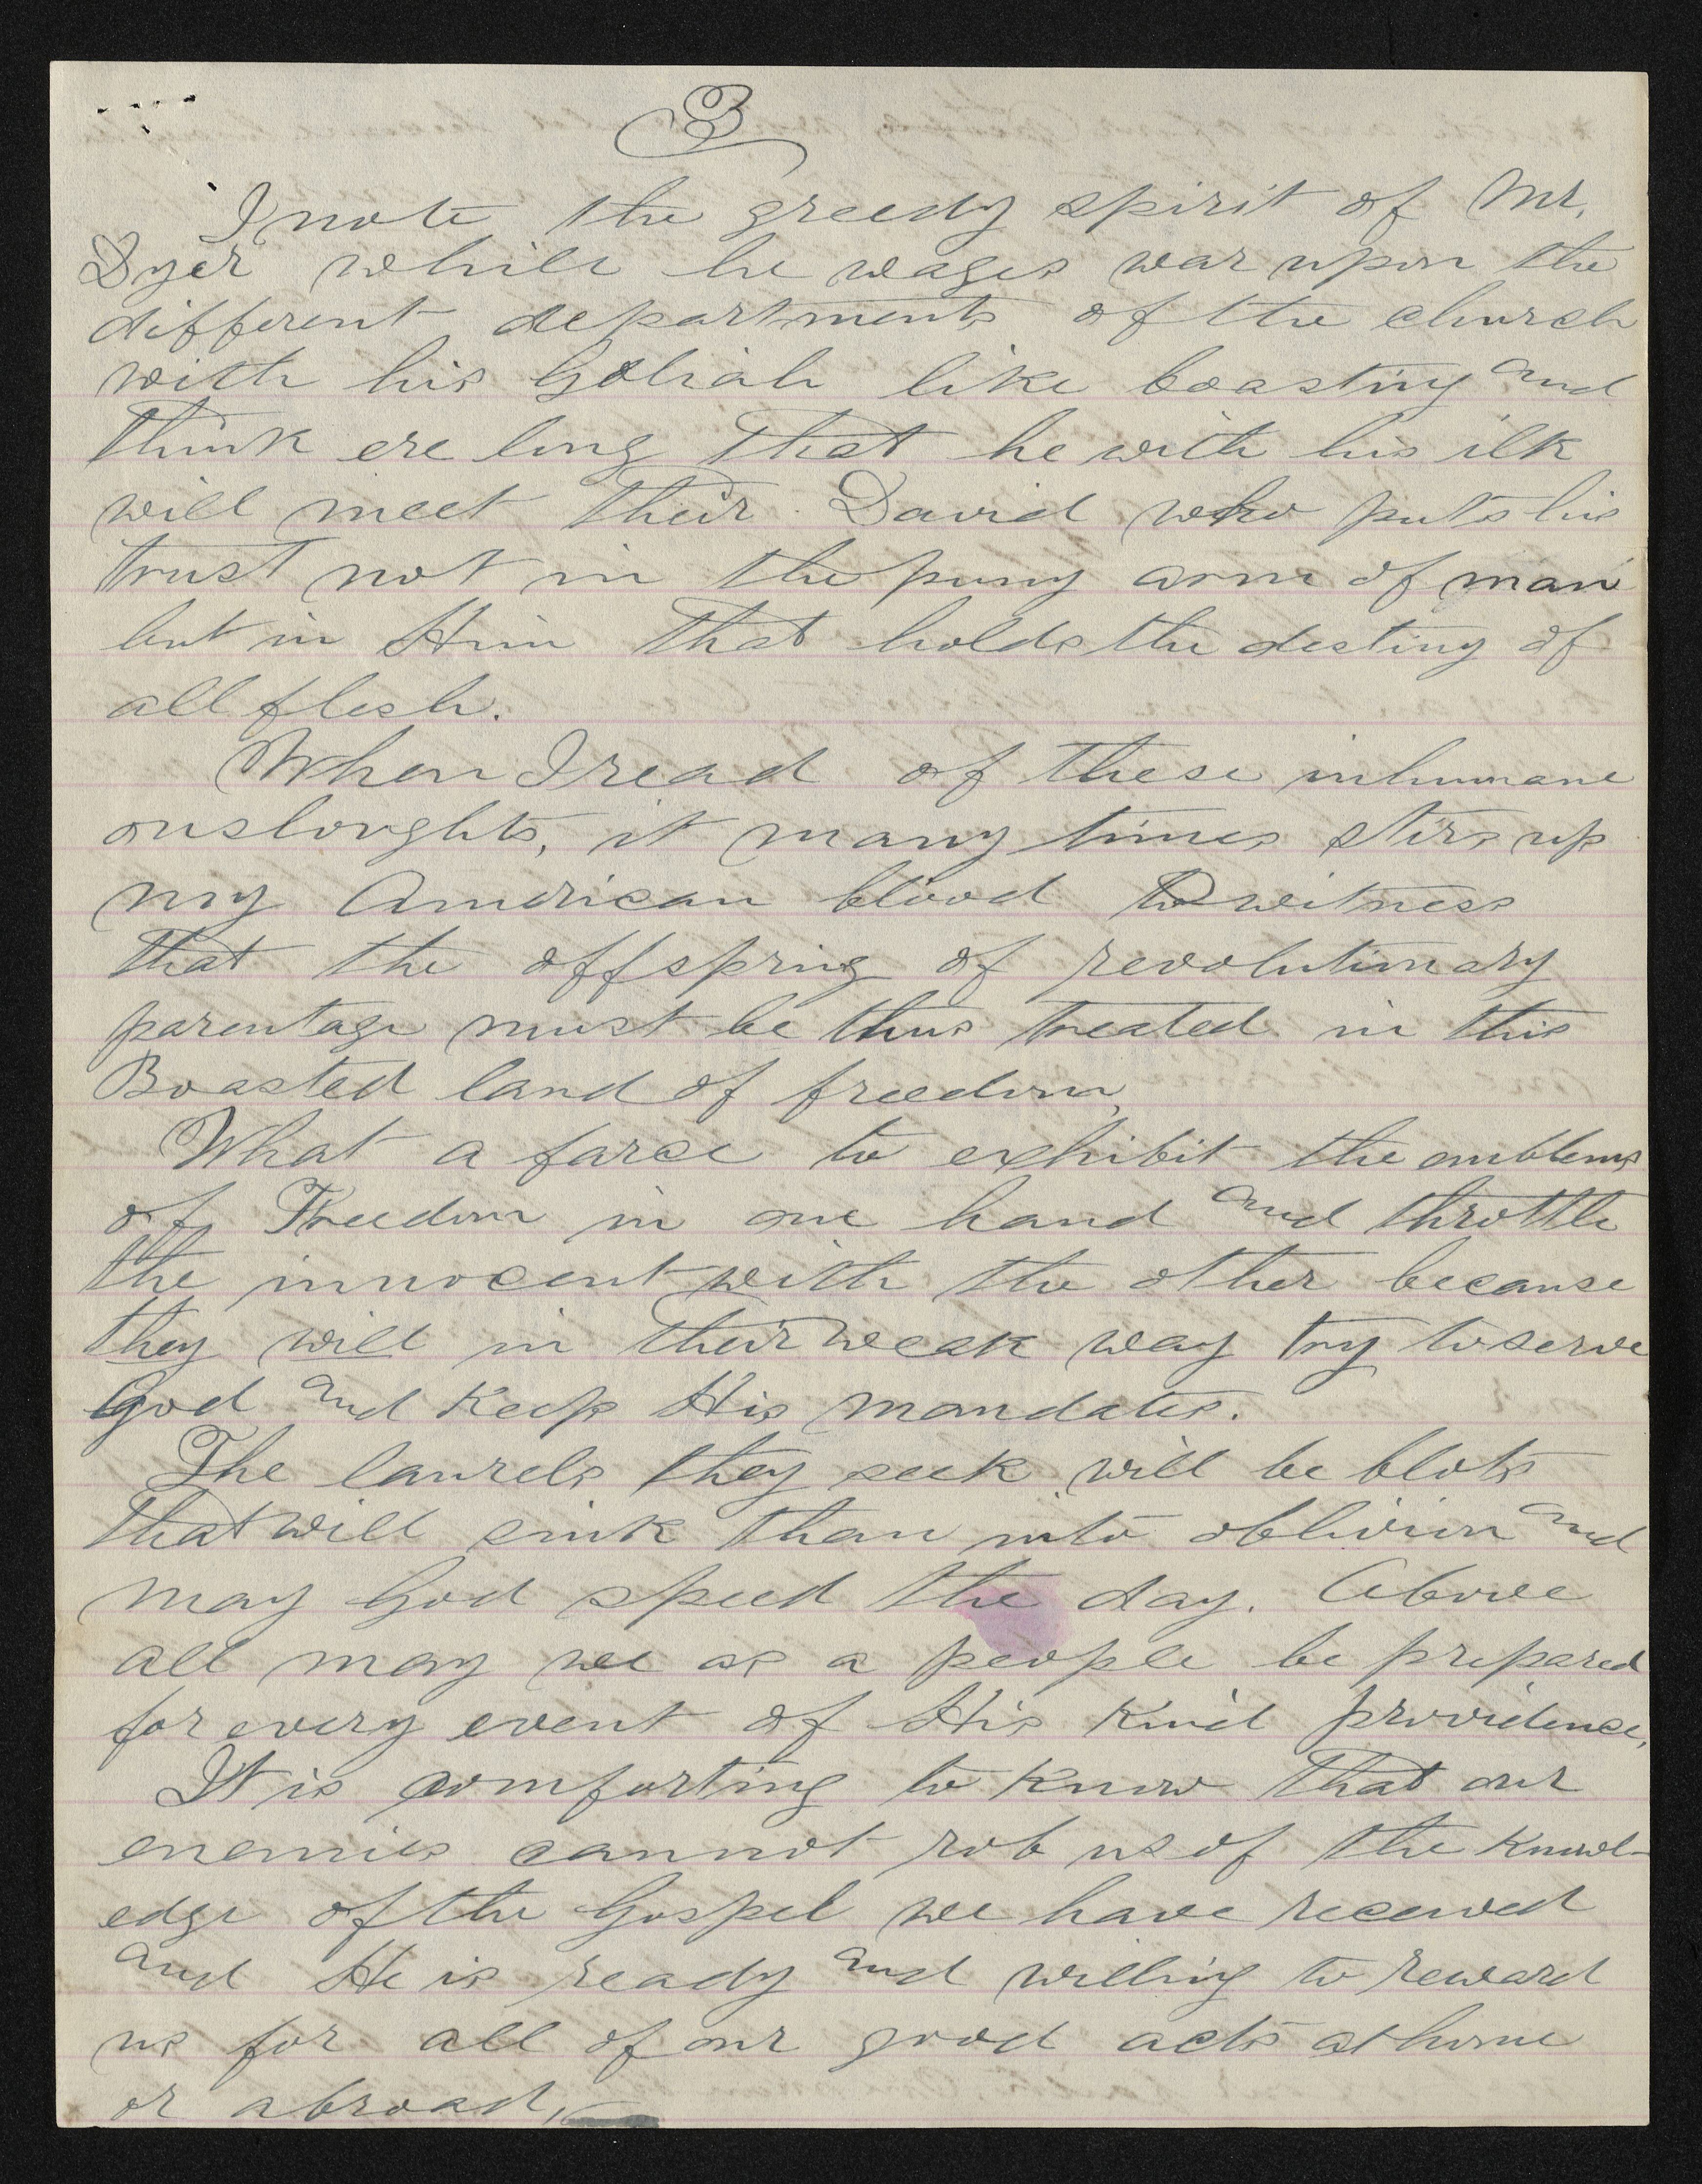 3
I note the greedy spirit of Mr.
Dyer while he wages war upon the
different departments of the church
with his Goliah like boasting and
think ere long that he with his ilk
will meet their David who puts his
trust not in the puny arm of man
but in Him that holds the destiny of
all flesh.
When I read of these inhumane
onsloughts, it many times stirs up
my American blood to witness
that the offspring of revolutionary
parentage must be thus treated in this
Boasted land of freedom,
What a farce to exhibit the emblems
of Freedom in one hand and throttle
the innocent with the other because
they will in their weak way try to serve
God and Keep His mandates.
The laurels they seek will be blots
that will sink them into oblivion and
may God speed the day. Above
all may we as a people be prepared
for every event of His Kind providence,
It is comforting to Know that our
enemies cannot rob us of the Knowl-
edge of the Gospel we have received
and He is ready and willing to reward
us for all of our good acts at home
or abroad,